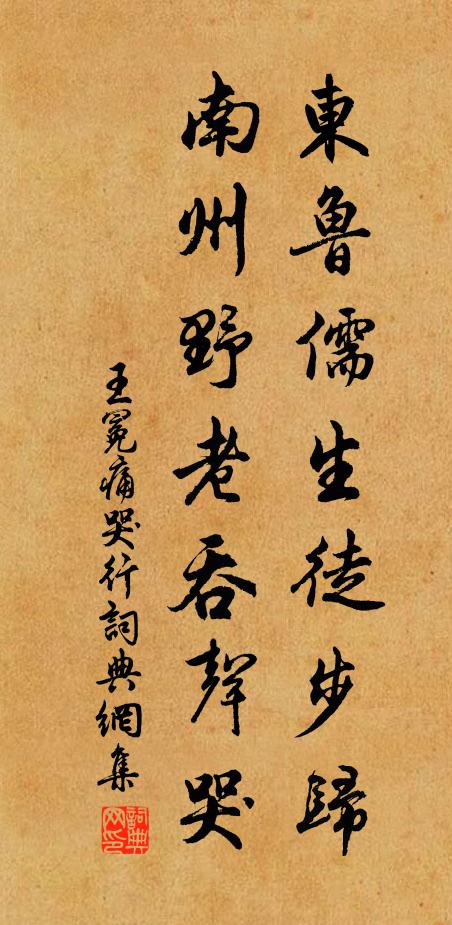 東魯儒生徒步歸
南州野老吞聲哭
王冕痛哭行詞典網集
詞典网印